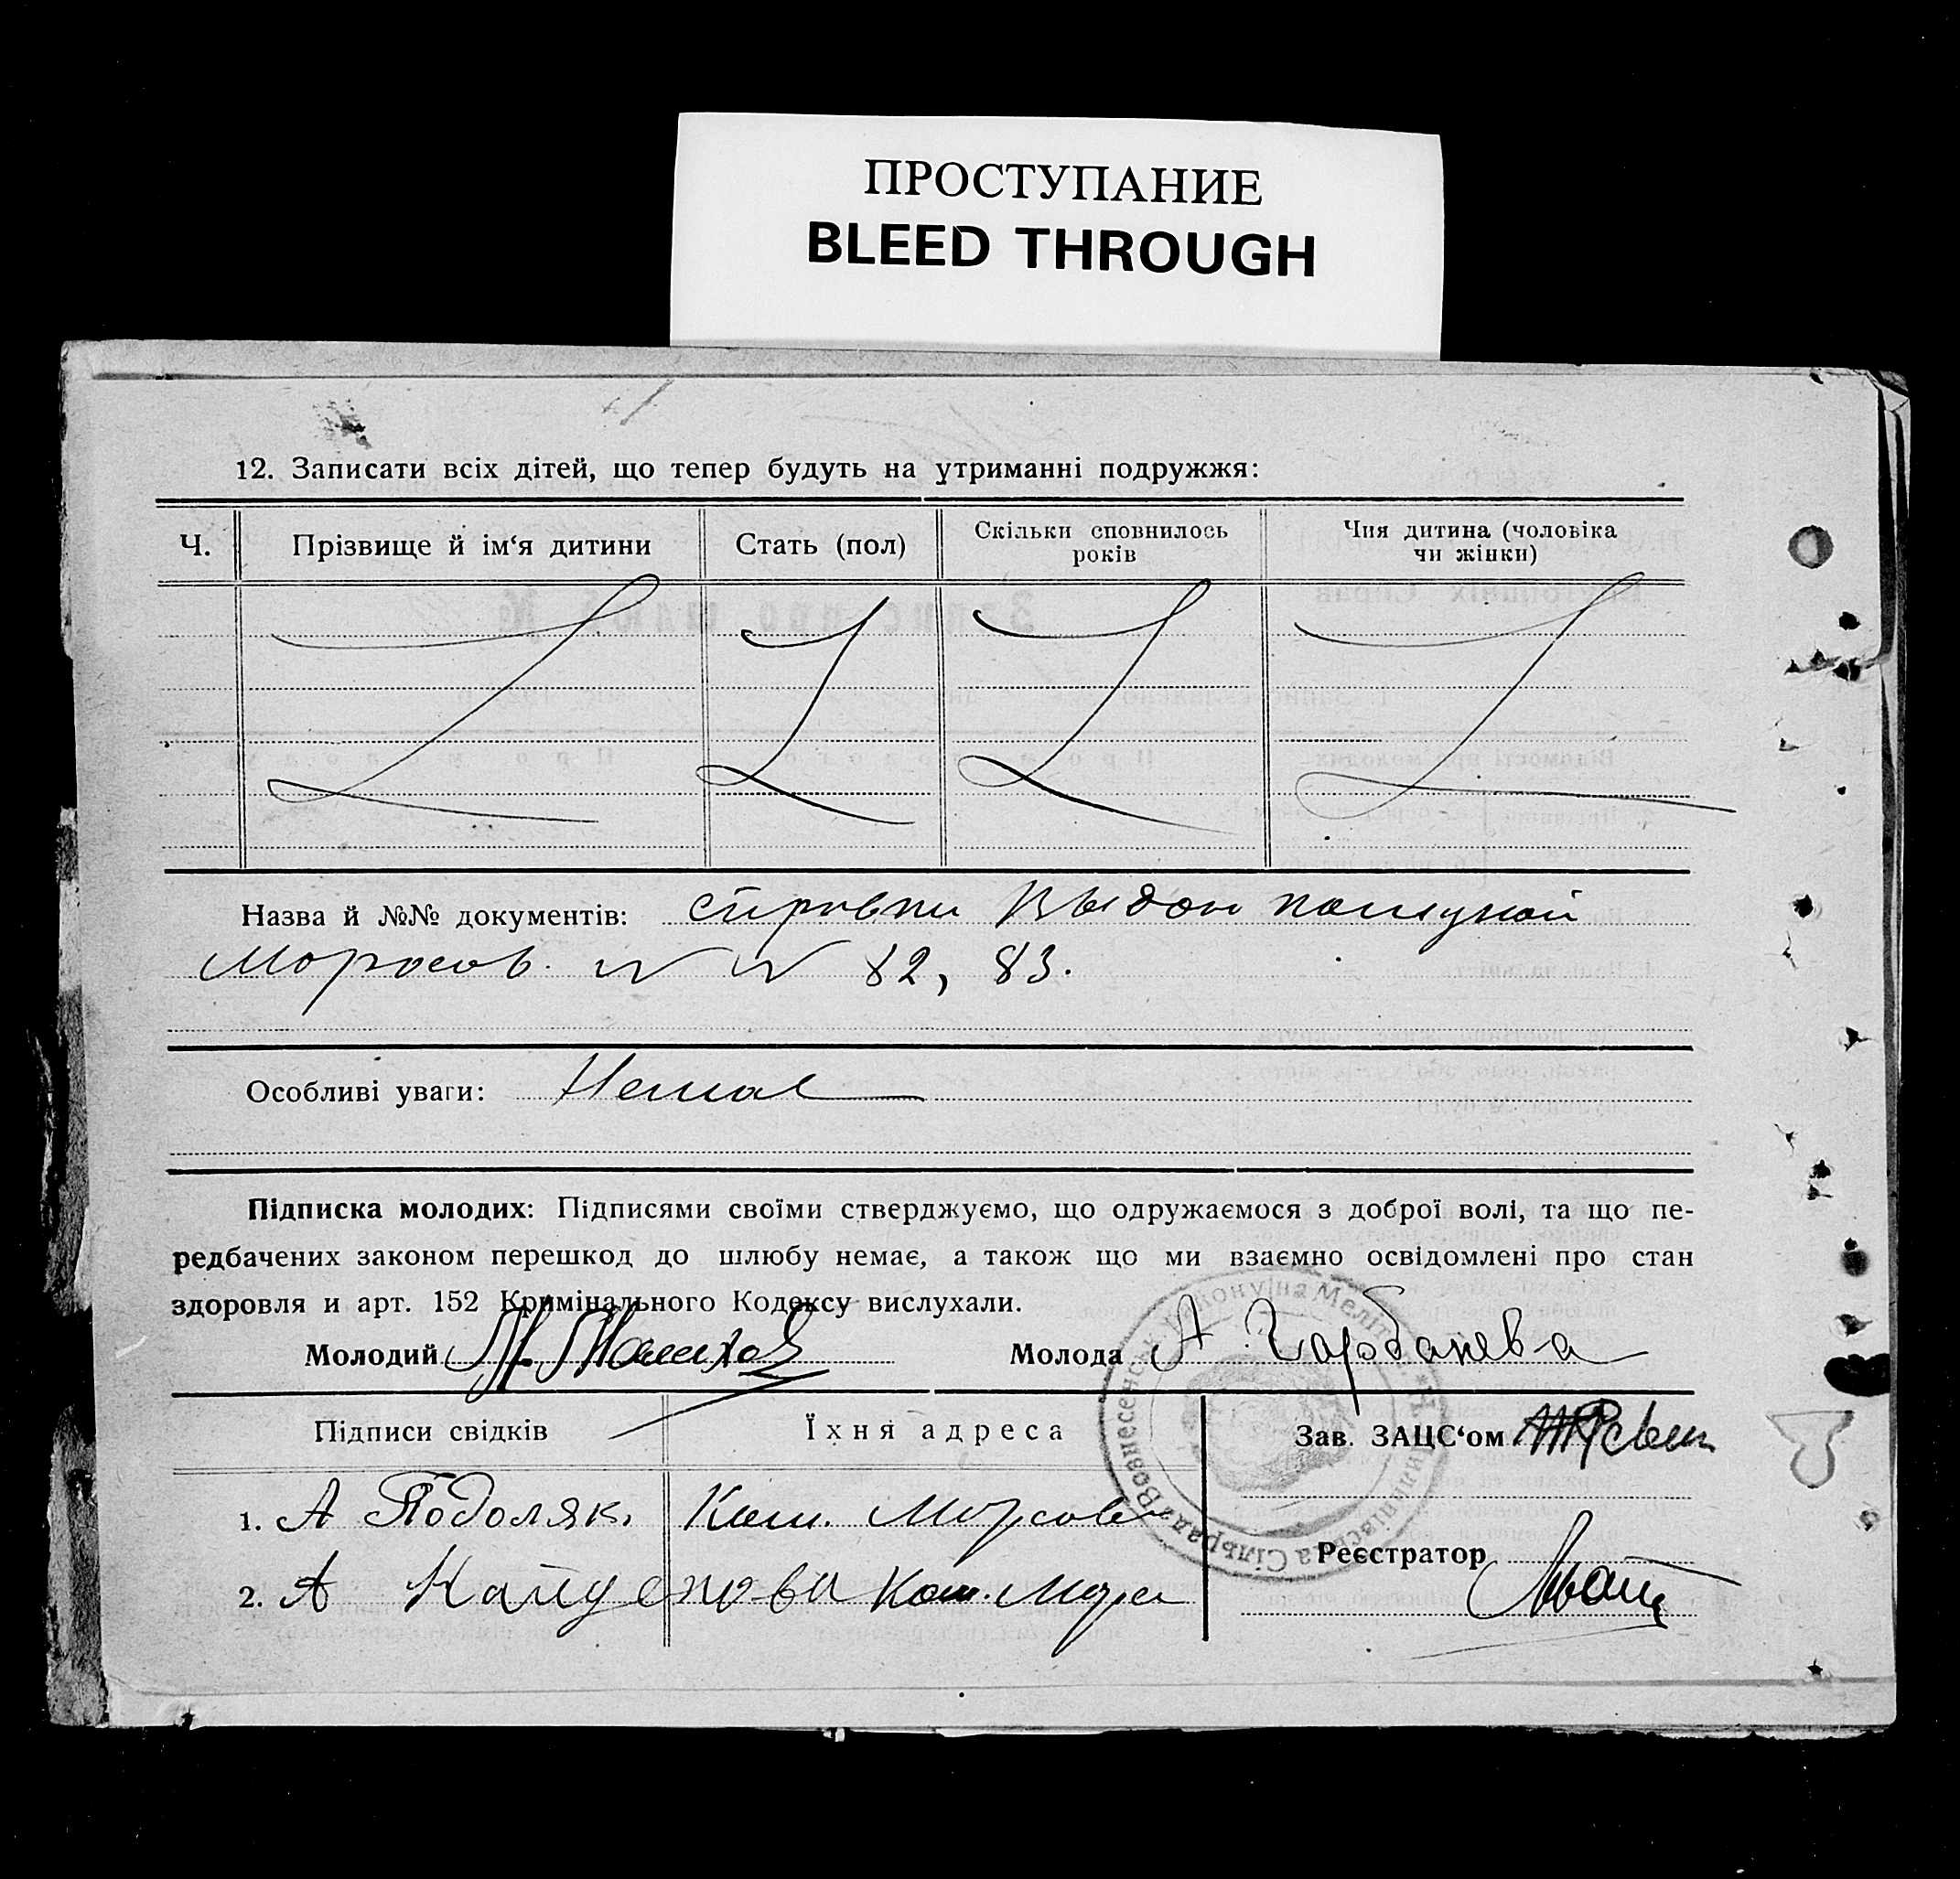 ПРОСТУПАНИЕ
BLEED THROUGH
12. Записати всіх дітей, що тепер будуть на утриманні подружжя:
Ч. Прізвище й ім‘я дитини Стать (пол) Скільки сповнилось років Чия дитина (чоловіка чи жінки)
Назва й №№ документів: справки
82, 83.
Особливі уваги: Немає
Підписка молодих: Підписями своїми стверджуємо, що одружаємося з доброї волі, та що пе-
редбачених законом перешкод до шлюбу немає, а також що ми взаємно освідомлені про стан
здоровля и арт. 152 Кримінального Кодексу вислухали.
Молодий Молода А
Підписи свідків Їхня адреса Зав. ЗАЦС‘ом
1. А Подоляк.
Реєстратор
2. А